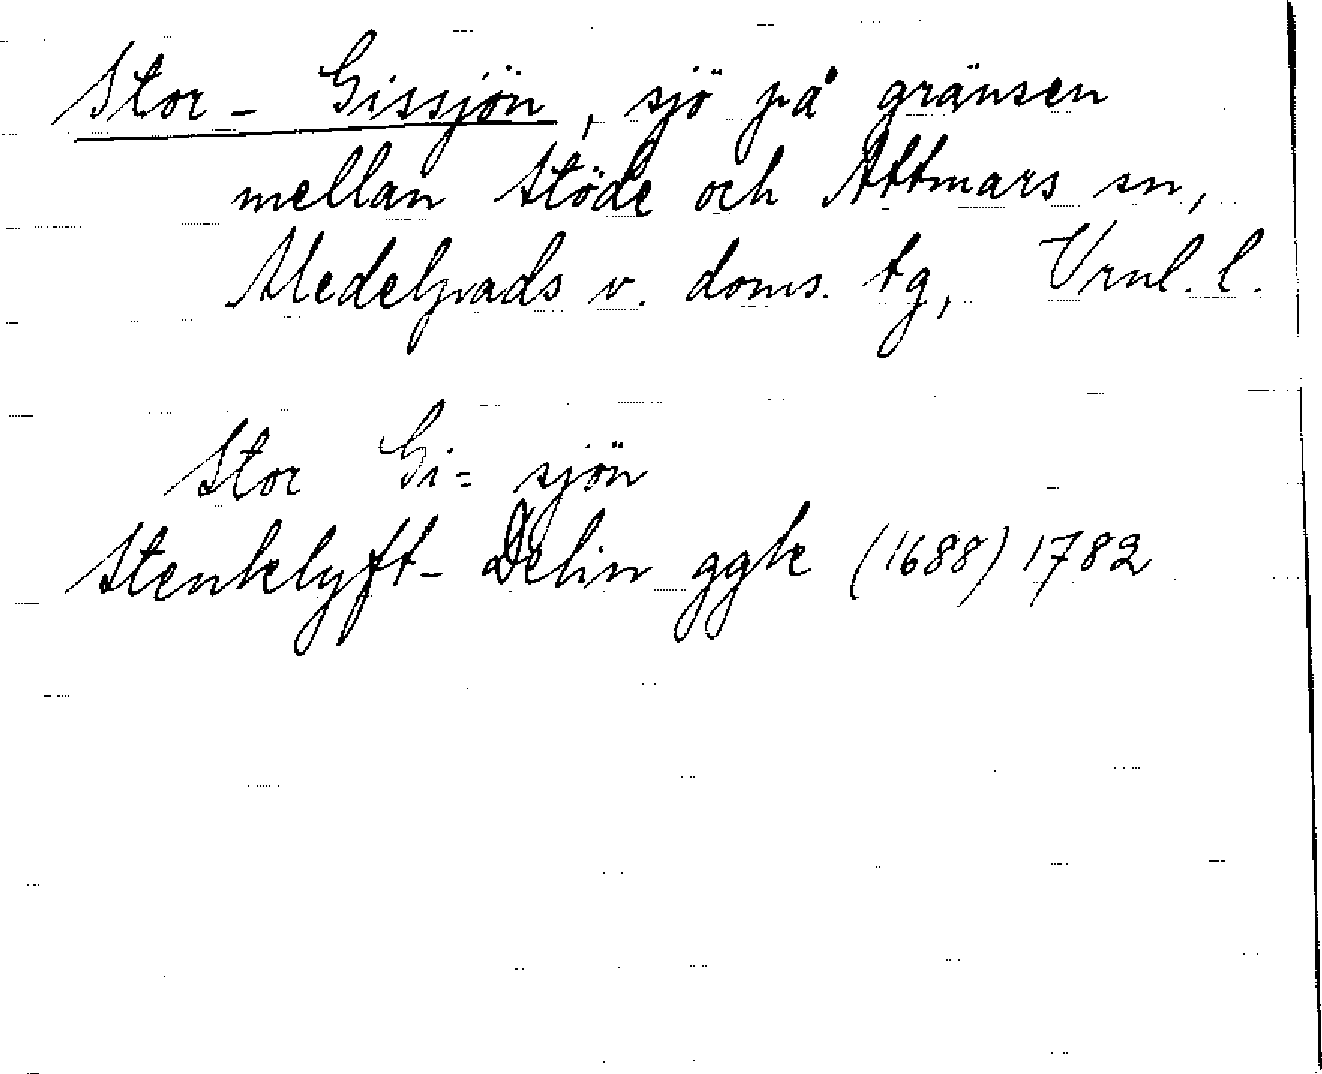 Stor-Gissjön, sjö på gränsen
mellan Stöde och Attmars sn,
Medelpads v. doms. tg, Vrnl. l.
Stor Gi= sjön
Stenklyft- Delin ggk (1688) 1782